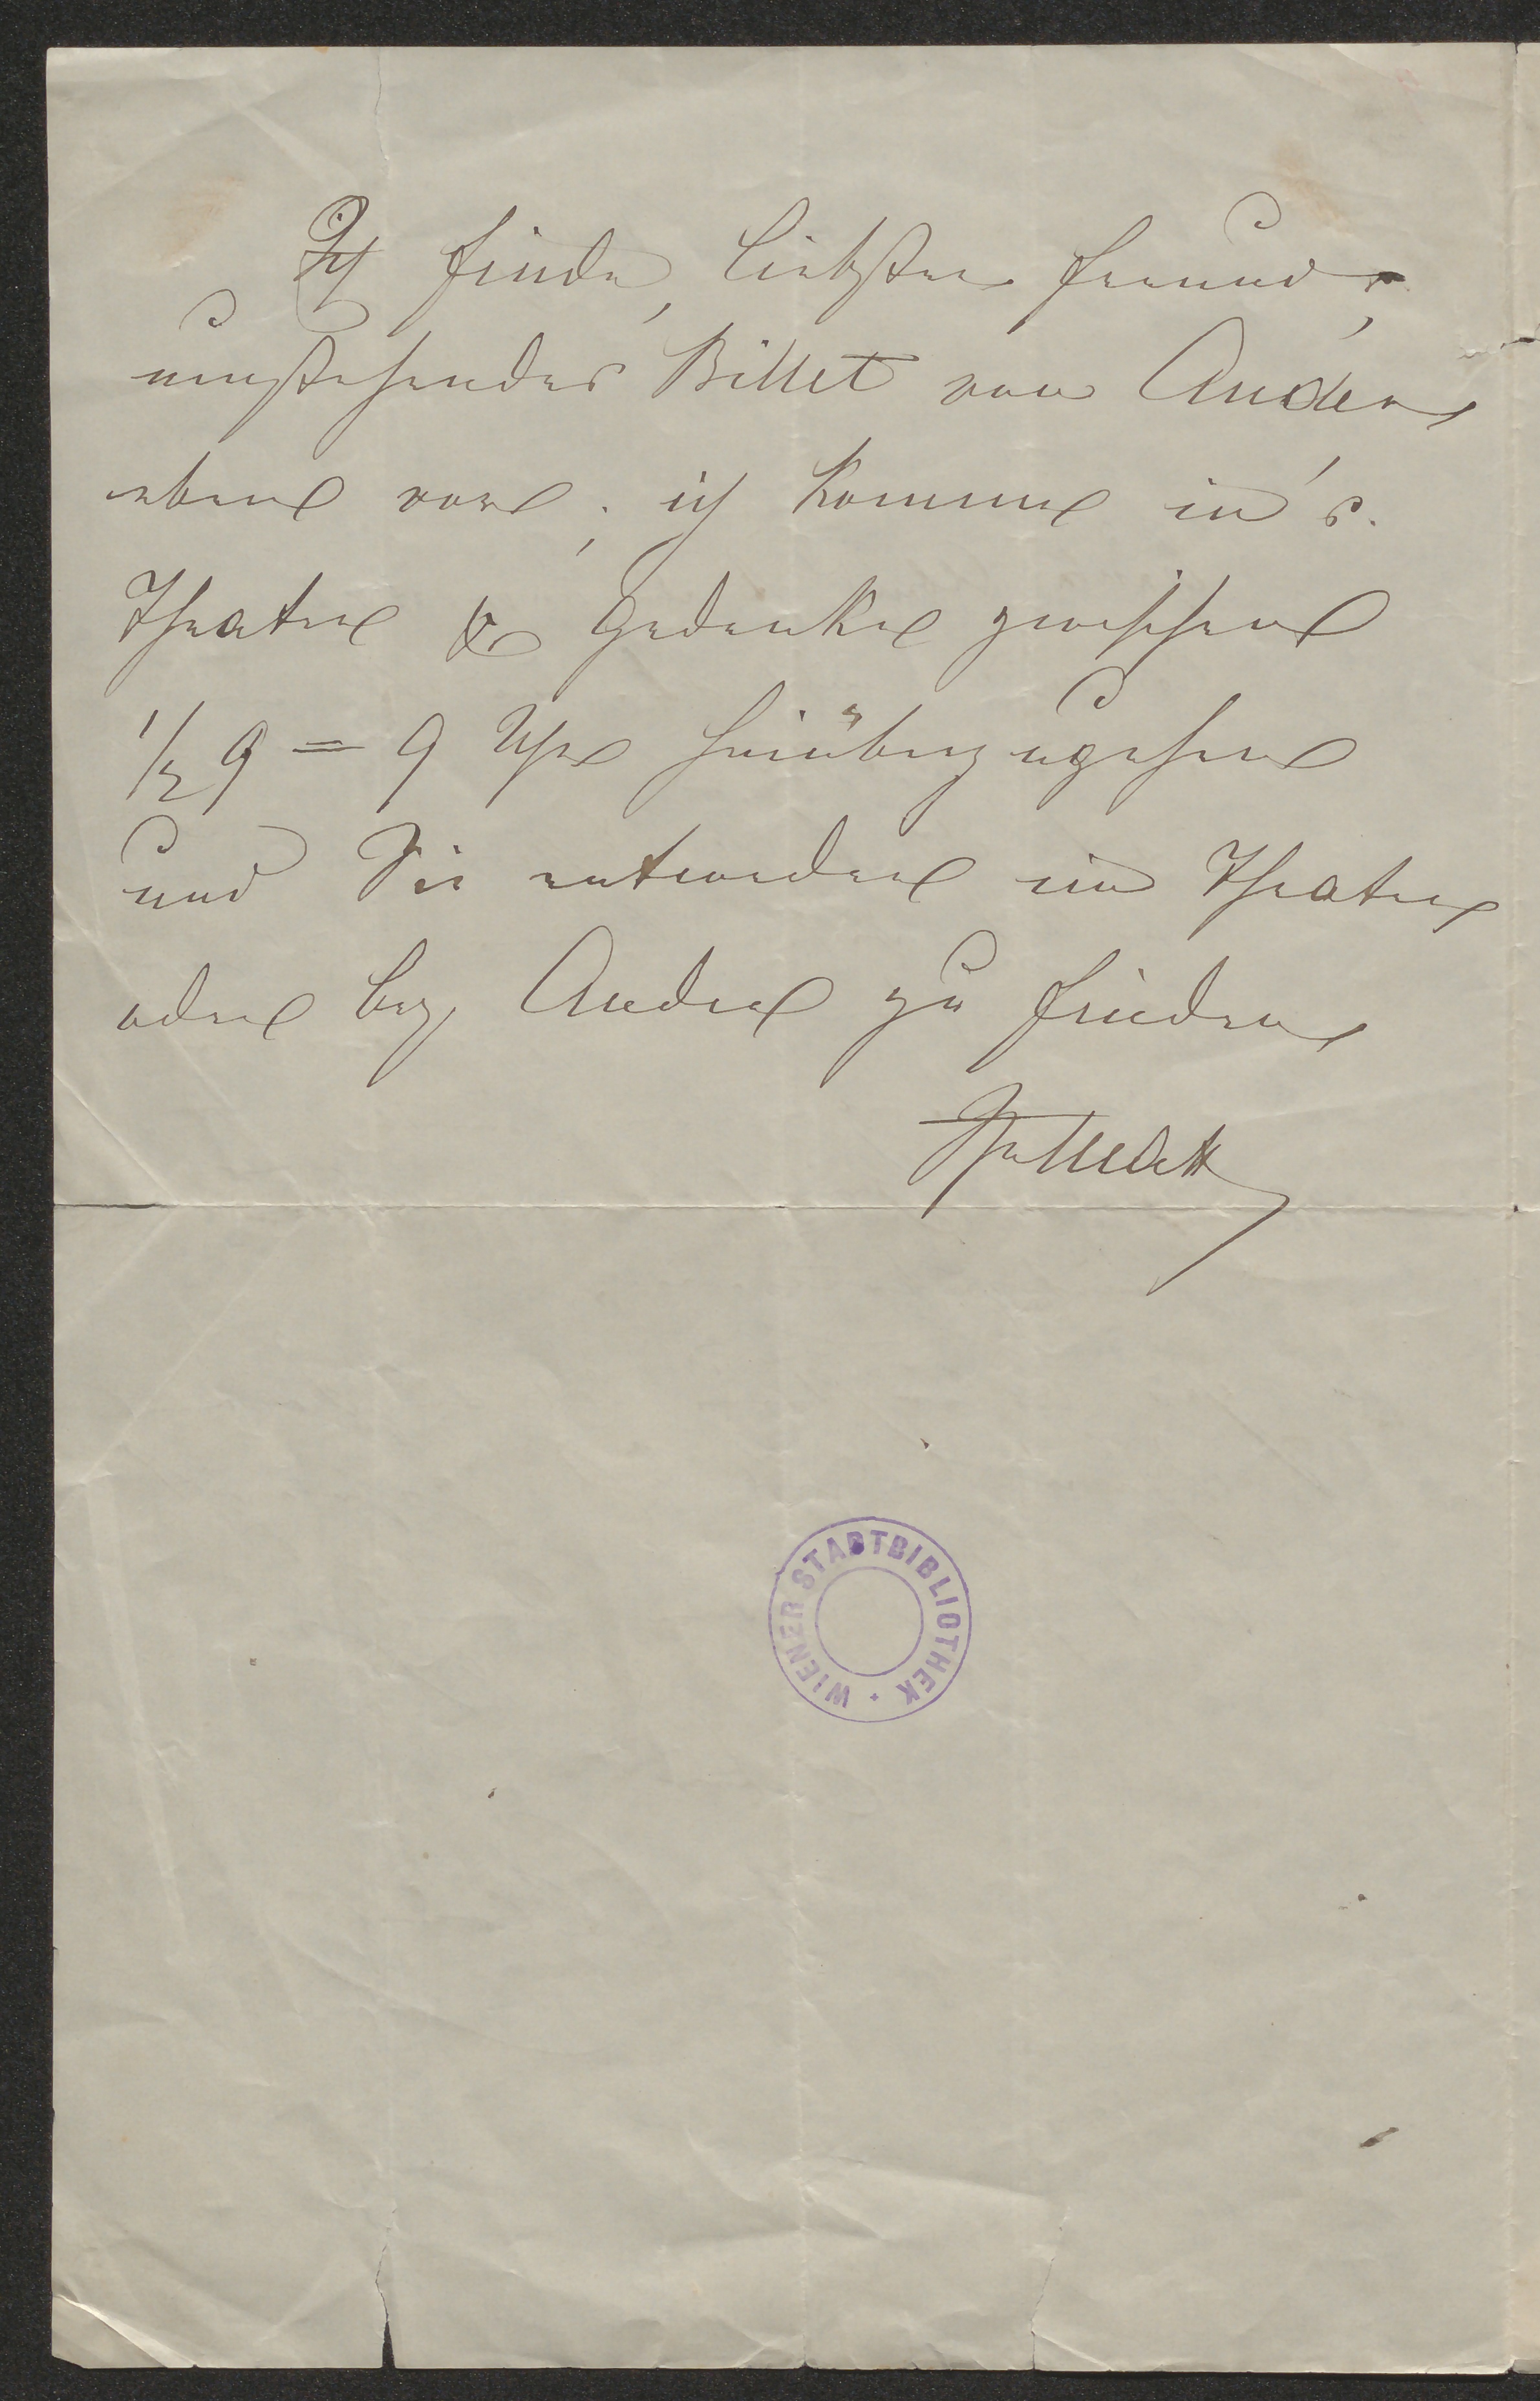 Ich finde, liebster Freund,
umstehendes Billet von Ander
eben vor; ich komme in's
Theater & gedenke zwischen
1/2 9 = 9 Uhr hinüberzugehen
und Sie entweder im Theater
oder bey Ander zu finden
WIENER STADTBIBLIOTHEK